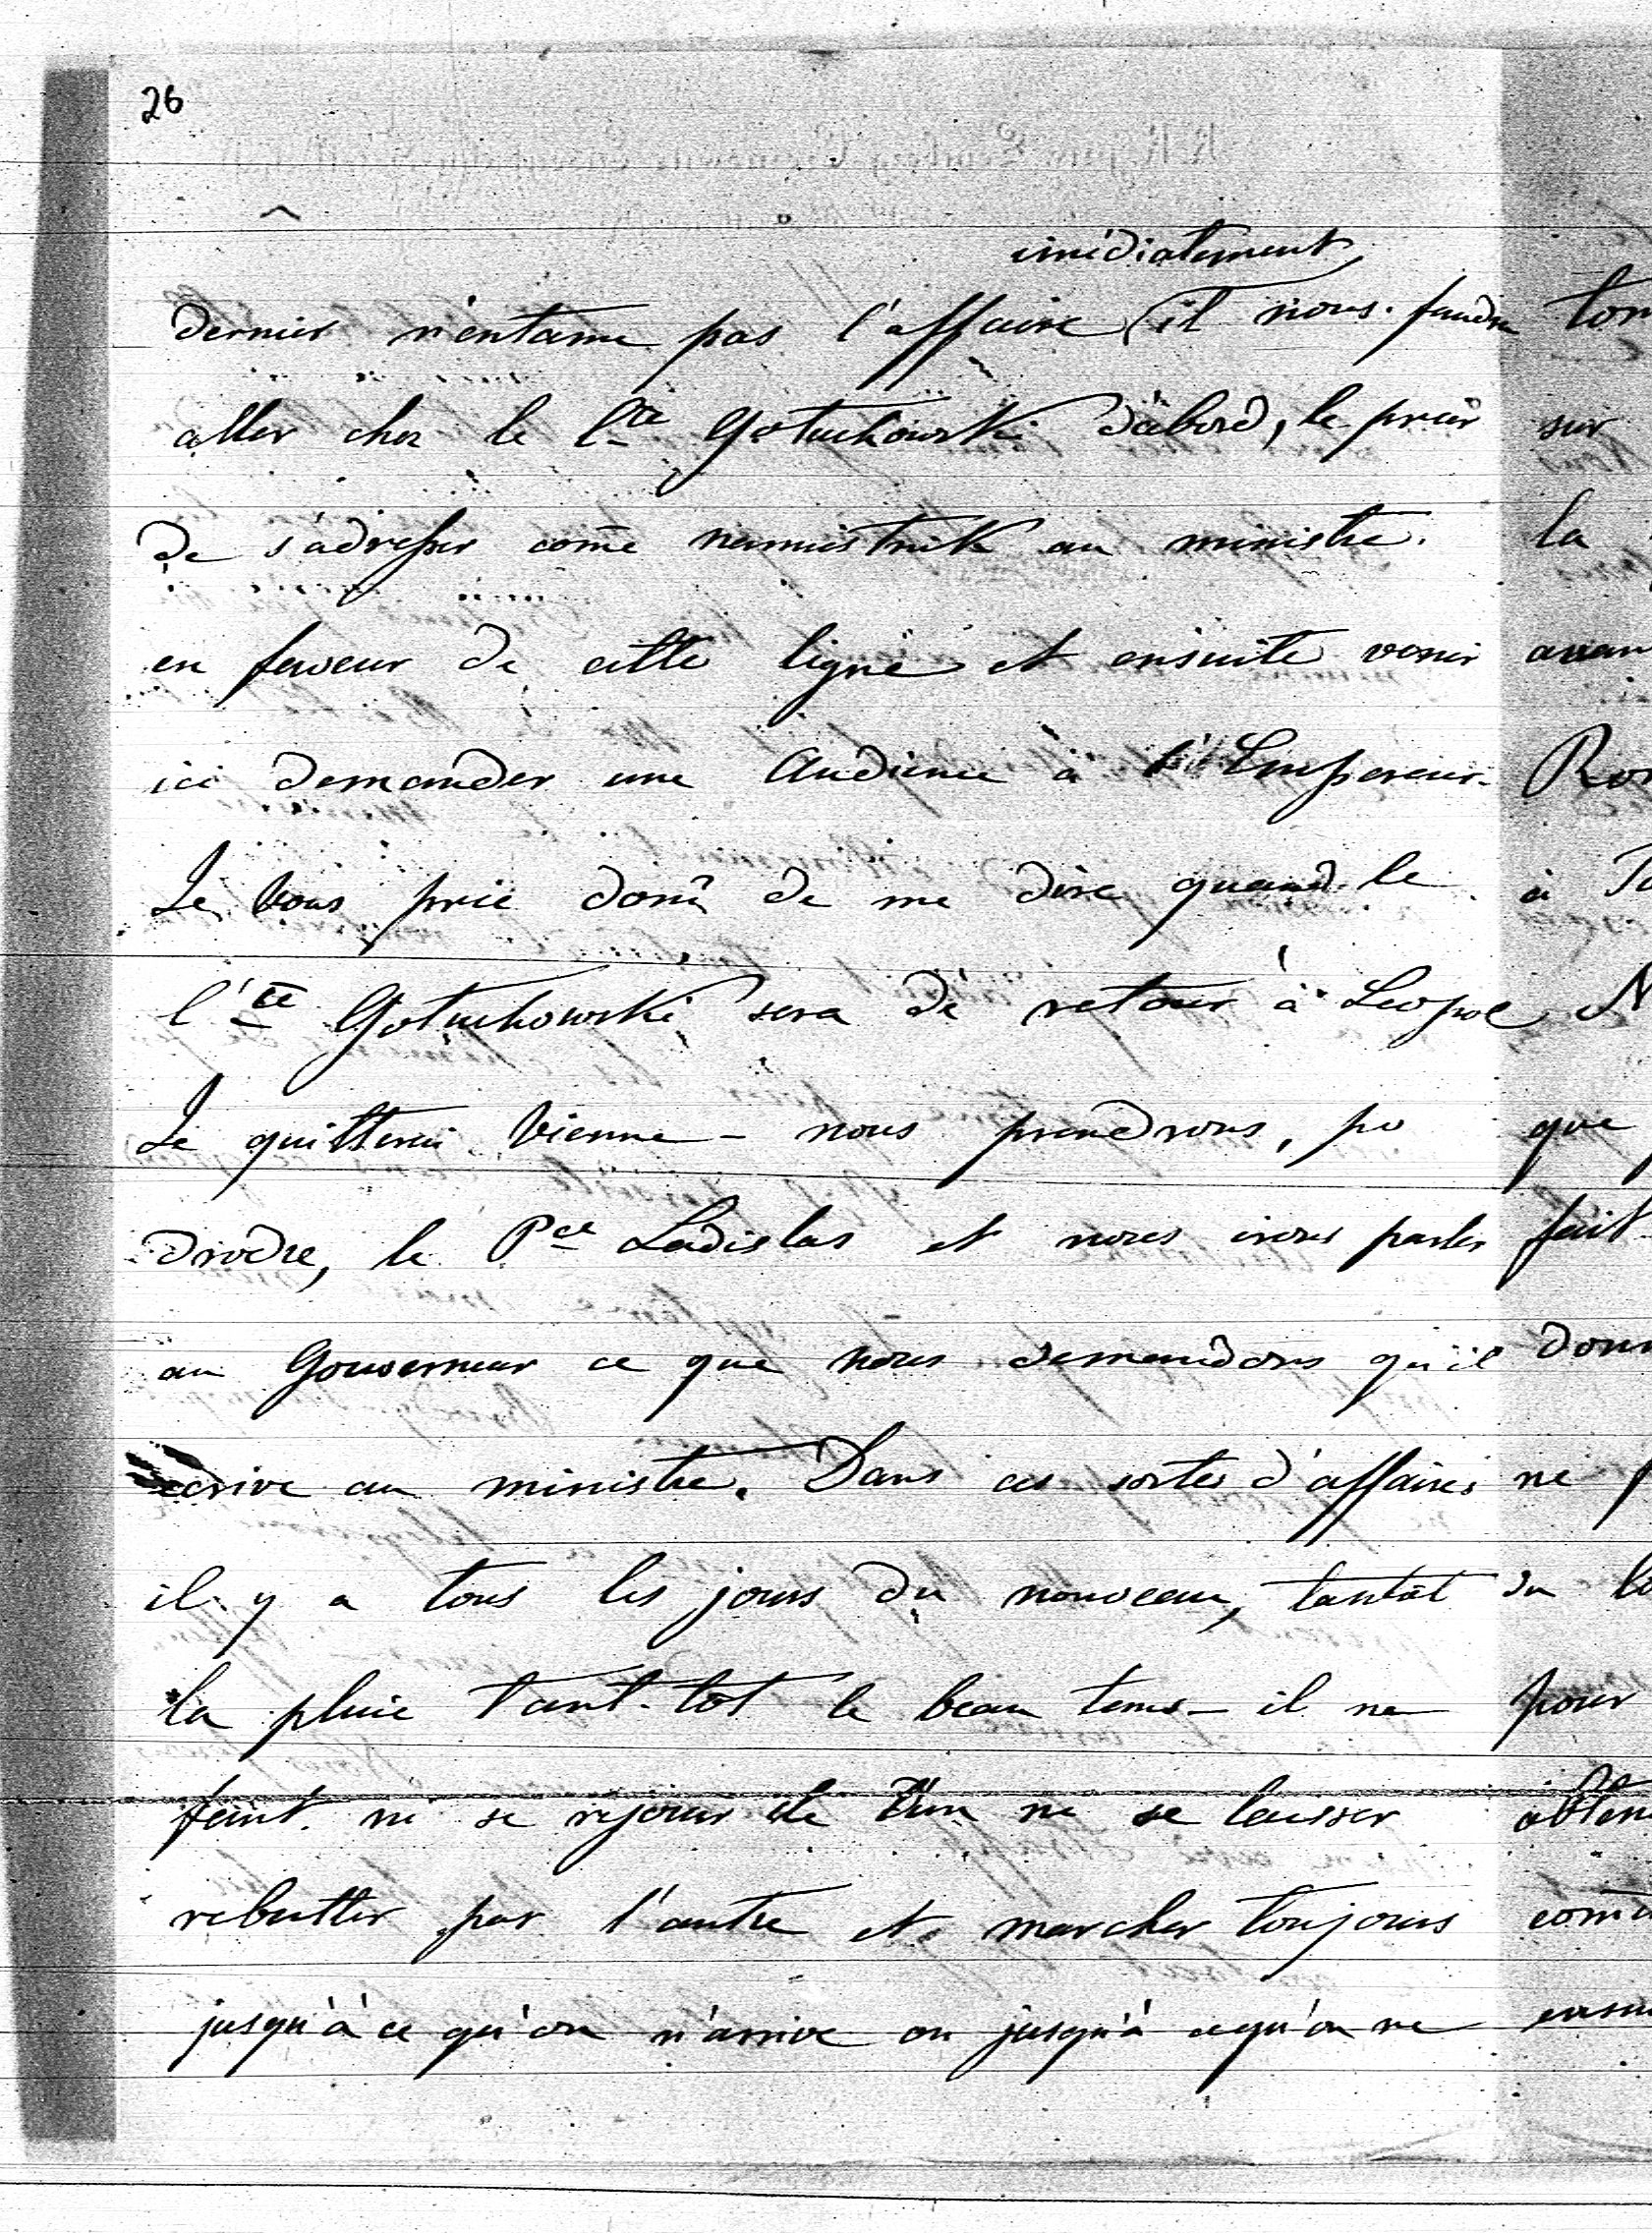 26
imédiatement
dernier n'entame pas l'affaire il nous faudra
aller chez le Cte Gotuchowski d'abord, le prier
de s'adresser come namiestnik au ministre
en faveur de cette ligne et ensuite venir
ici demander une Audience à l'Empereur.
Je vous prie donc de me dire quand le
Cte Gotuchowski sera de retour à Leopol
Je quitterai Vienne - nous prendrons,
drodze, le Pce Ladislas et nous irons parler
au Gouverneur ce que nous demandons qu'il
écrive au ministre. Dans ces sortes d'affaires
il y a tous les jours du nouveau, tantôt
la pluie tant-tôt le beau tems - il ne
faut ni se rejouir de l'un ni se laisser
rebutter par l'autre et marcher toujours
jusqu'à ce qu'on n'arrive ou jusqu'à cequ'on ne
sur
la
à
que
fait
ne
pour